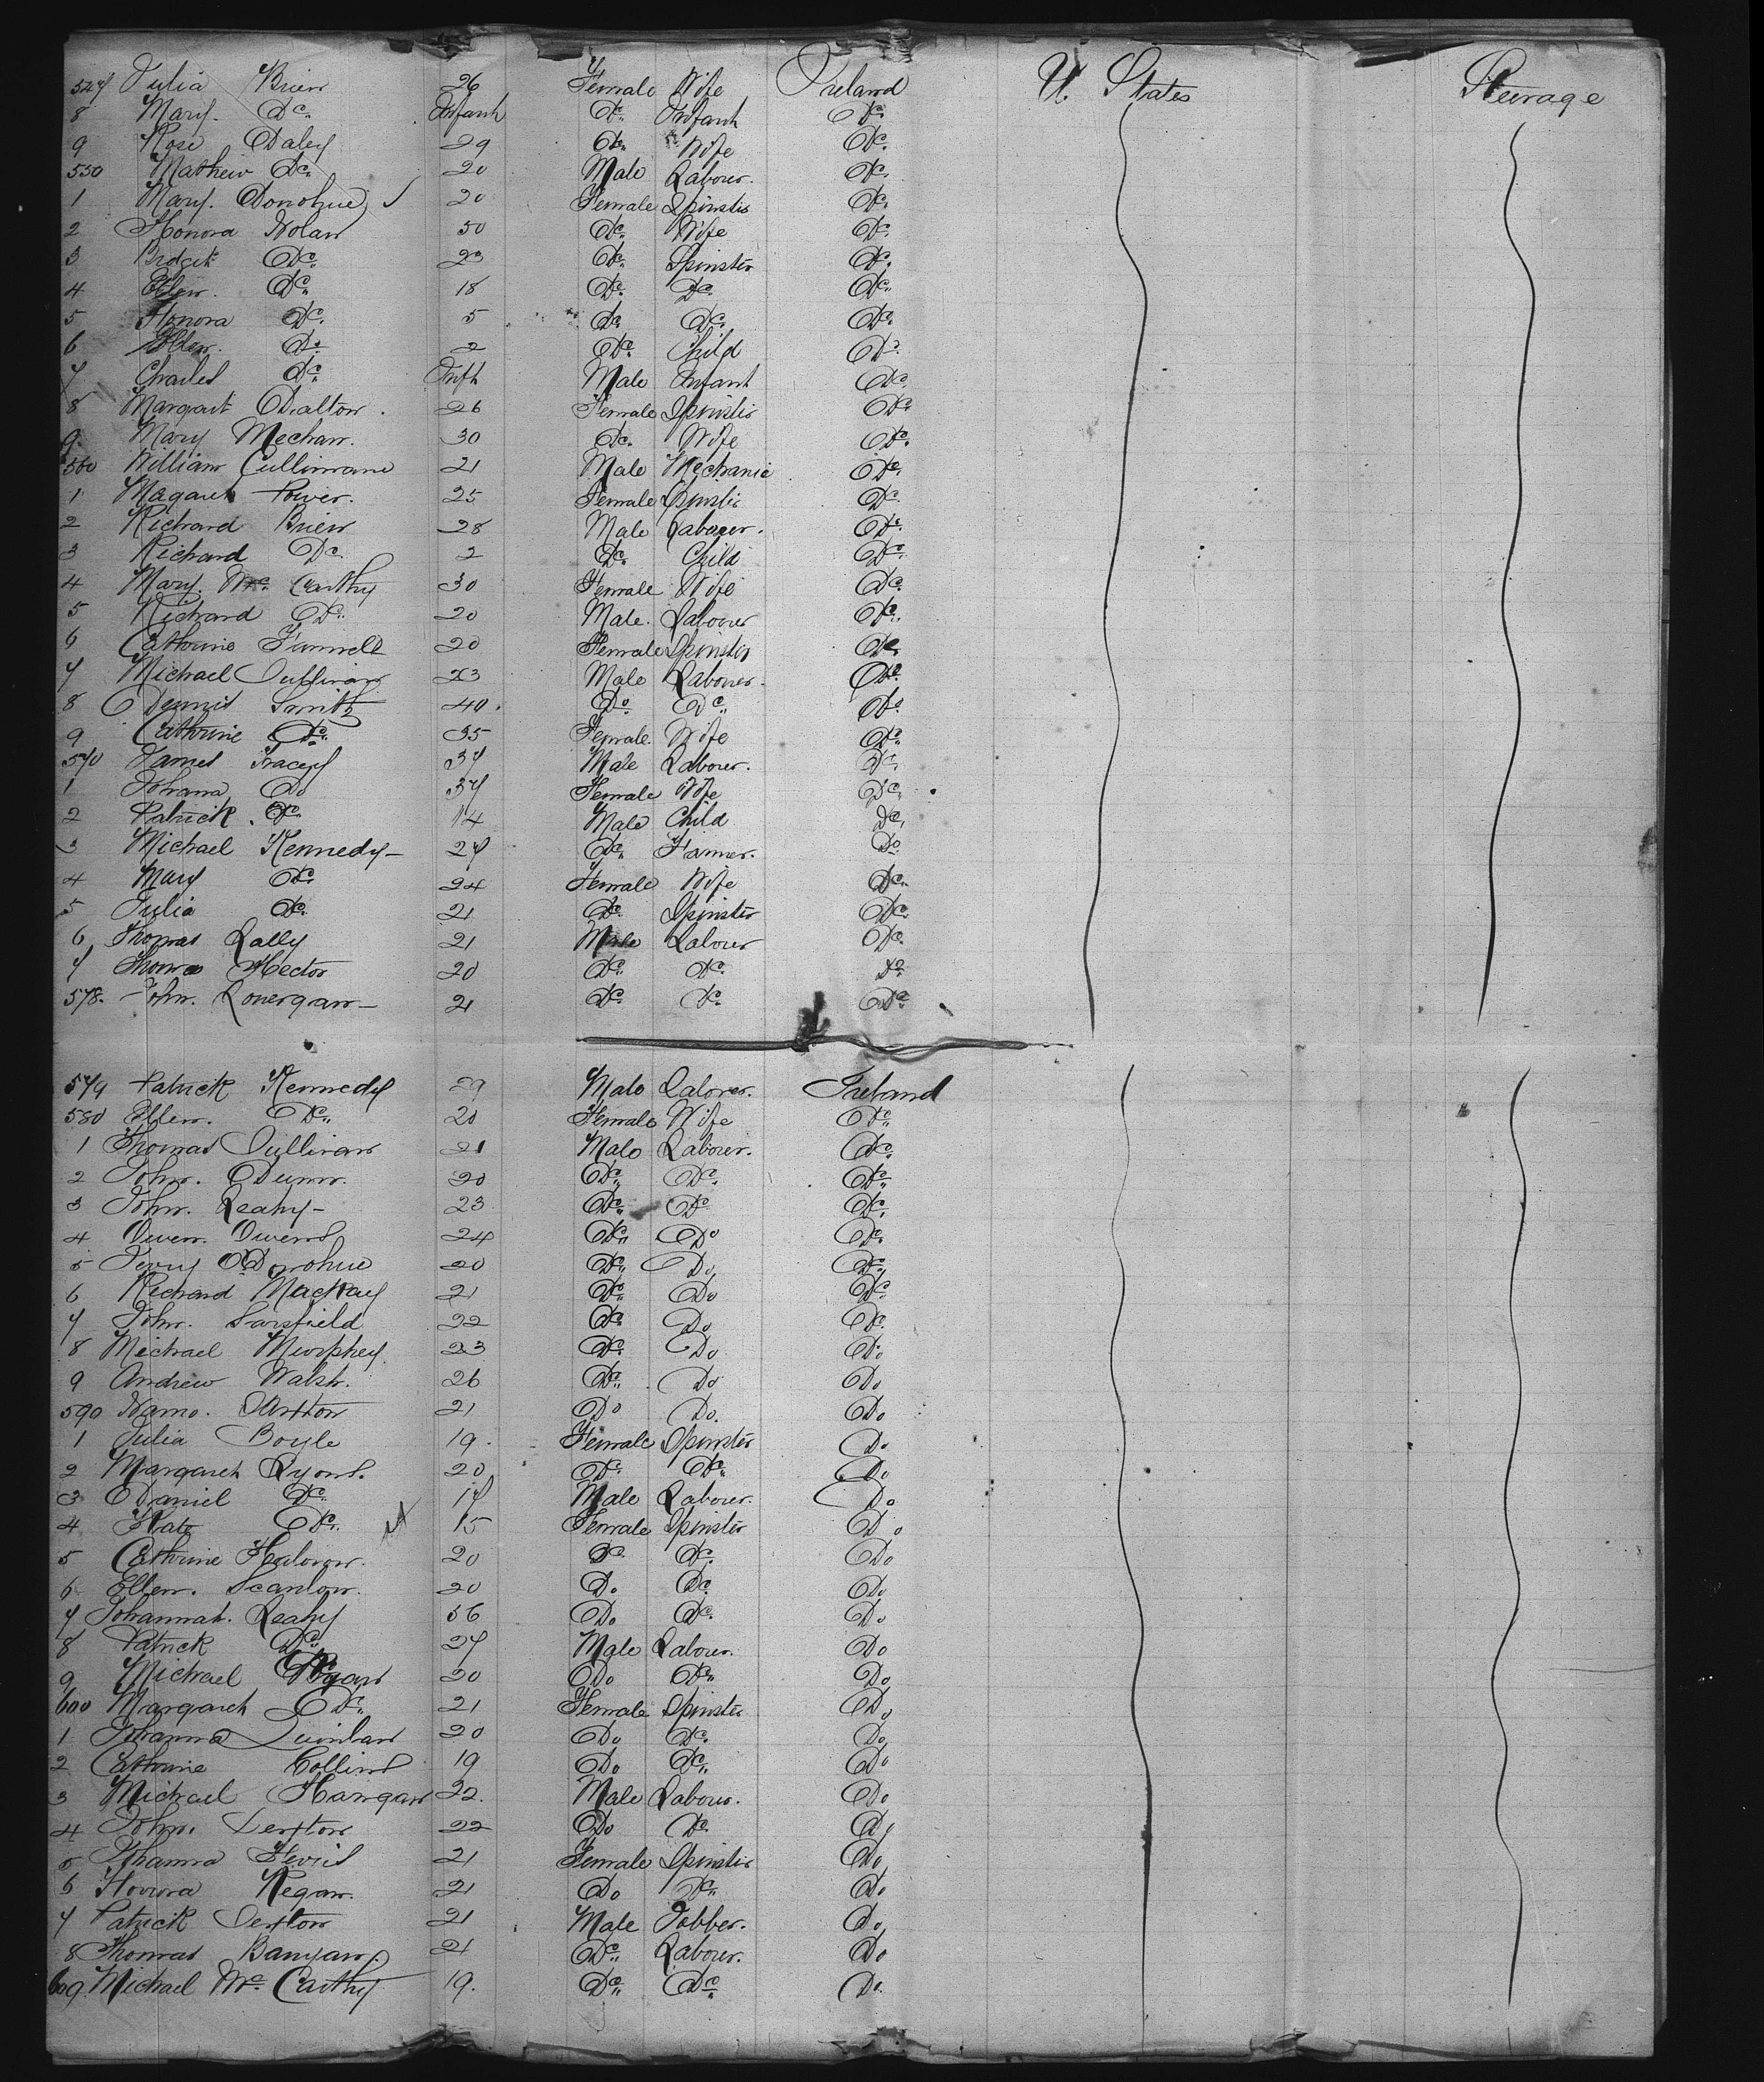 547 Julia Brien 26 Female Wife Ireland U. States Steerage
8 Mary Do. Infant Do. Infant Do.
9 Rose Daley 29 Do. Wife Do.
550 Mathew Do. 20 Male Labourer. Do.
1 Mary Donohue 20 Female Spinster Do.
2 Honora Nolan 50 Do. Wife Do.
3 Bridget Do. 23 Do. Spinster Do.
4 Ellen Do. 18 Do. Do. Do.
5 Honora Do. 5 Do. Do. Do.
6 Do. 2 Do. Child Do.
7 Charles Do. Inft Male Infant Do.
8 Margart Dalton. 26 Female Spinster Do.
9 Mary Mechan. 30 Do. Wife Do.
560 William Cullinane 21 Male Mechanic Do.
1 Magaret Power. 25 Female Spinster Do.
2 Richard Brien 28 Male Labourer. Do.
3 Richard Do. 2 Do. Child Do.
4 Mary Mc Carthy 30 Female Wife Do.
5 Richard Do. 20 Male Labourer Do.
6 Catherine 20 Female Spinster Do.
7 Michael Sullivan 23 Male Labourer. Do.
8 Dennis 40. Do. Do. Do.
9 Catherine Do. 35 Female Wife Do.
570 James Tracey 37 Male Labourer. Do.
1 Johana Do 37 Female Wife Do.
2 Patrick Do. 14 Male Child Do.
3 Michael Kennedy 27 Do. Farmer. Do.
4 Mary Do. 24 Female Wife Do.
5 Julia Do. 21 Do. Spinster Do.
6 Thomas Lally 21 Male Labourer Do.
7 Thomas Hector 20 Do. Do. Do.
578. John Lonergan 21 Do. Do. Do.
579 Patrick Kennedy 29 Male Labourer. Ireland
580 Ellen. Do. 20 Female Wife Do.
1 Thomas Sullivan 21 Male Labourer. Do.
2 John. Dunn. 20 Do. Do. Do.
3 John. Leahy 23 Do. Do. Do.
4 Owen. Owens 24 Do. Do Do.
5 Jerry O'Donohue 20 Do. Do Do.
6 Richard Mackay 21 Do. Do Do.
7 John. Sarsfield 22 Do. Do Do.
8 Michael Murphey 23 Do. Do Do
9 Andrew Walsh. 26 Do. Do Do
590 21 Do Do. Do
1 Julia Boyle 19. Female Spinster Do
2 Margaret Lyons. 20 Do. Do. Do
3 Daniel Do. 17 Male Labourer. Do
4 Kate Do. 15 Female Spinster Do
5 Catherine 20 Do. Do. Do
6 Ellen. Scanlon. 20 Do Do. Do
7 Johannah. Leahy 56 Do Do. Do
8 Patrick Do. 27 Male Labourer. Do
9 Michael Ryan 20 Do Do. Do
600 Margaret Do. 21 Female Spinster Do
1 Johanna Quinlan 20 Do Do. Do
2 Catherine Collins 19 Do Do. Do
3 Michael Hanigan 22. Male Labourer. Do
4 John. Sexton 22 Do Do. Do
5 Johanna 21 Female Spinster Do
6 Honora Regan. 21 Do Do. Do
7 Patrick Sexton 21 Male Jobber. Do
8 Thomas Banyan 21 Do. Labourer. Do
609. Michael Mc Carthy 19. Do. Do. Do.